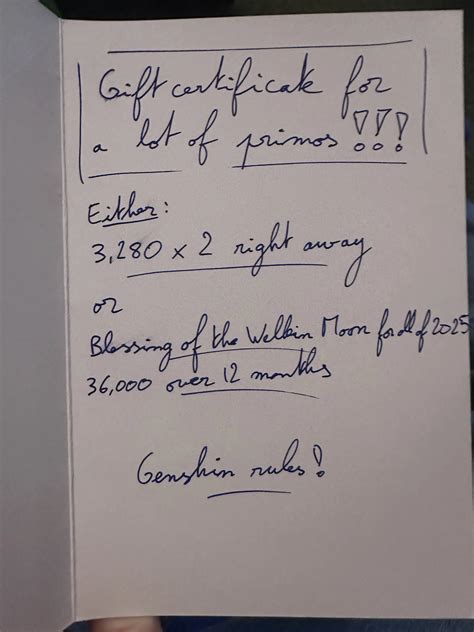 Gift certificate for
a lot of primos !!!
Either:
3,280 x 2 right away
or
Blessing of the Welkin Moon for all of 2025
36,000 over 12 months
Genshin rules!